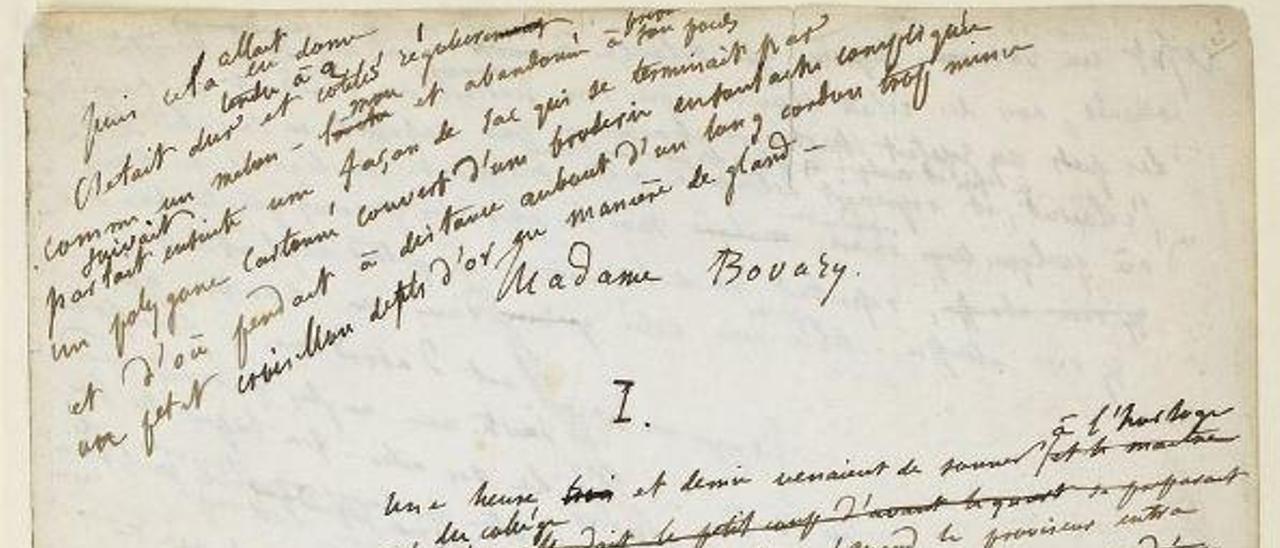 puis cela allait en donne
C'était dur et tendu à côtes régulièrement
comme un melon - mou et abandonné à son poids
suivait
partait ensuite une façon de sac qui se terminait par
un polygone cartonné couvert d'une broderie en soutache compliquée
et d'où pendait à distance au bout d'un long cordon trop mince
un petit croisillon de fils d'or en manière de gland -
Madame Bovary.
I.
à l'horloge
Une heure trois et demie venaient de sonner et le maître
du collège
le petit coup d'avant le quart se préparait
quand le proviseur entra